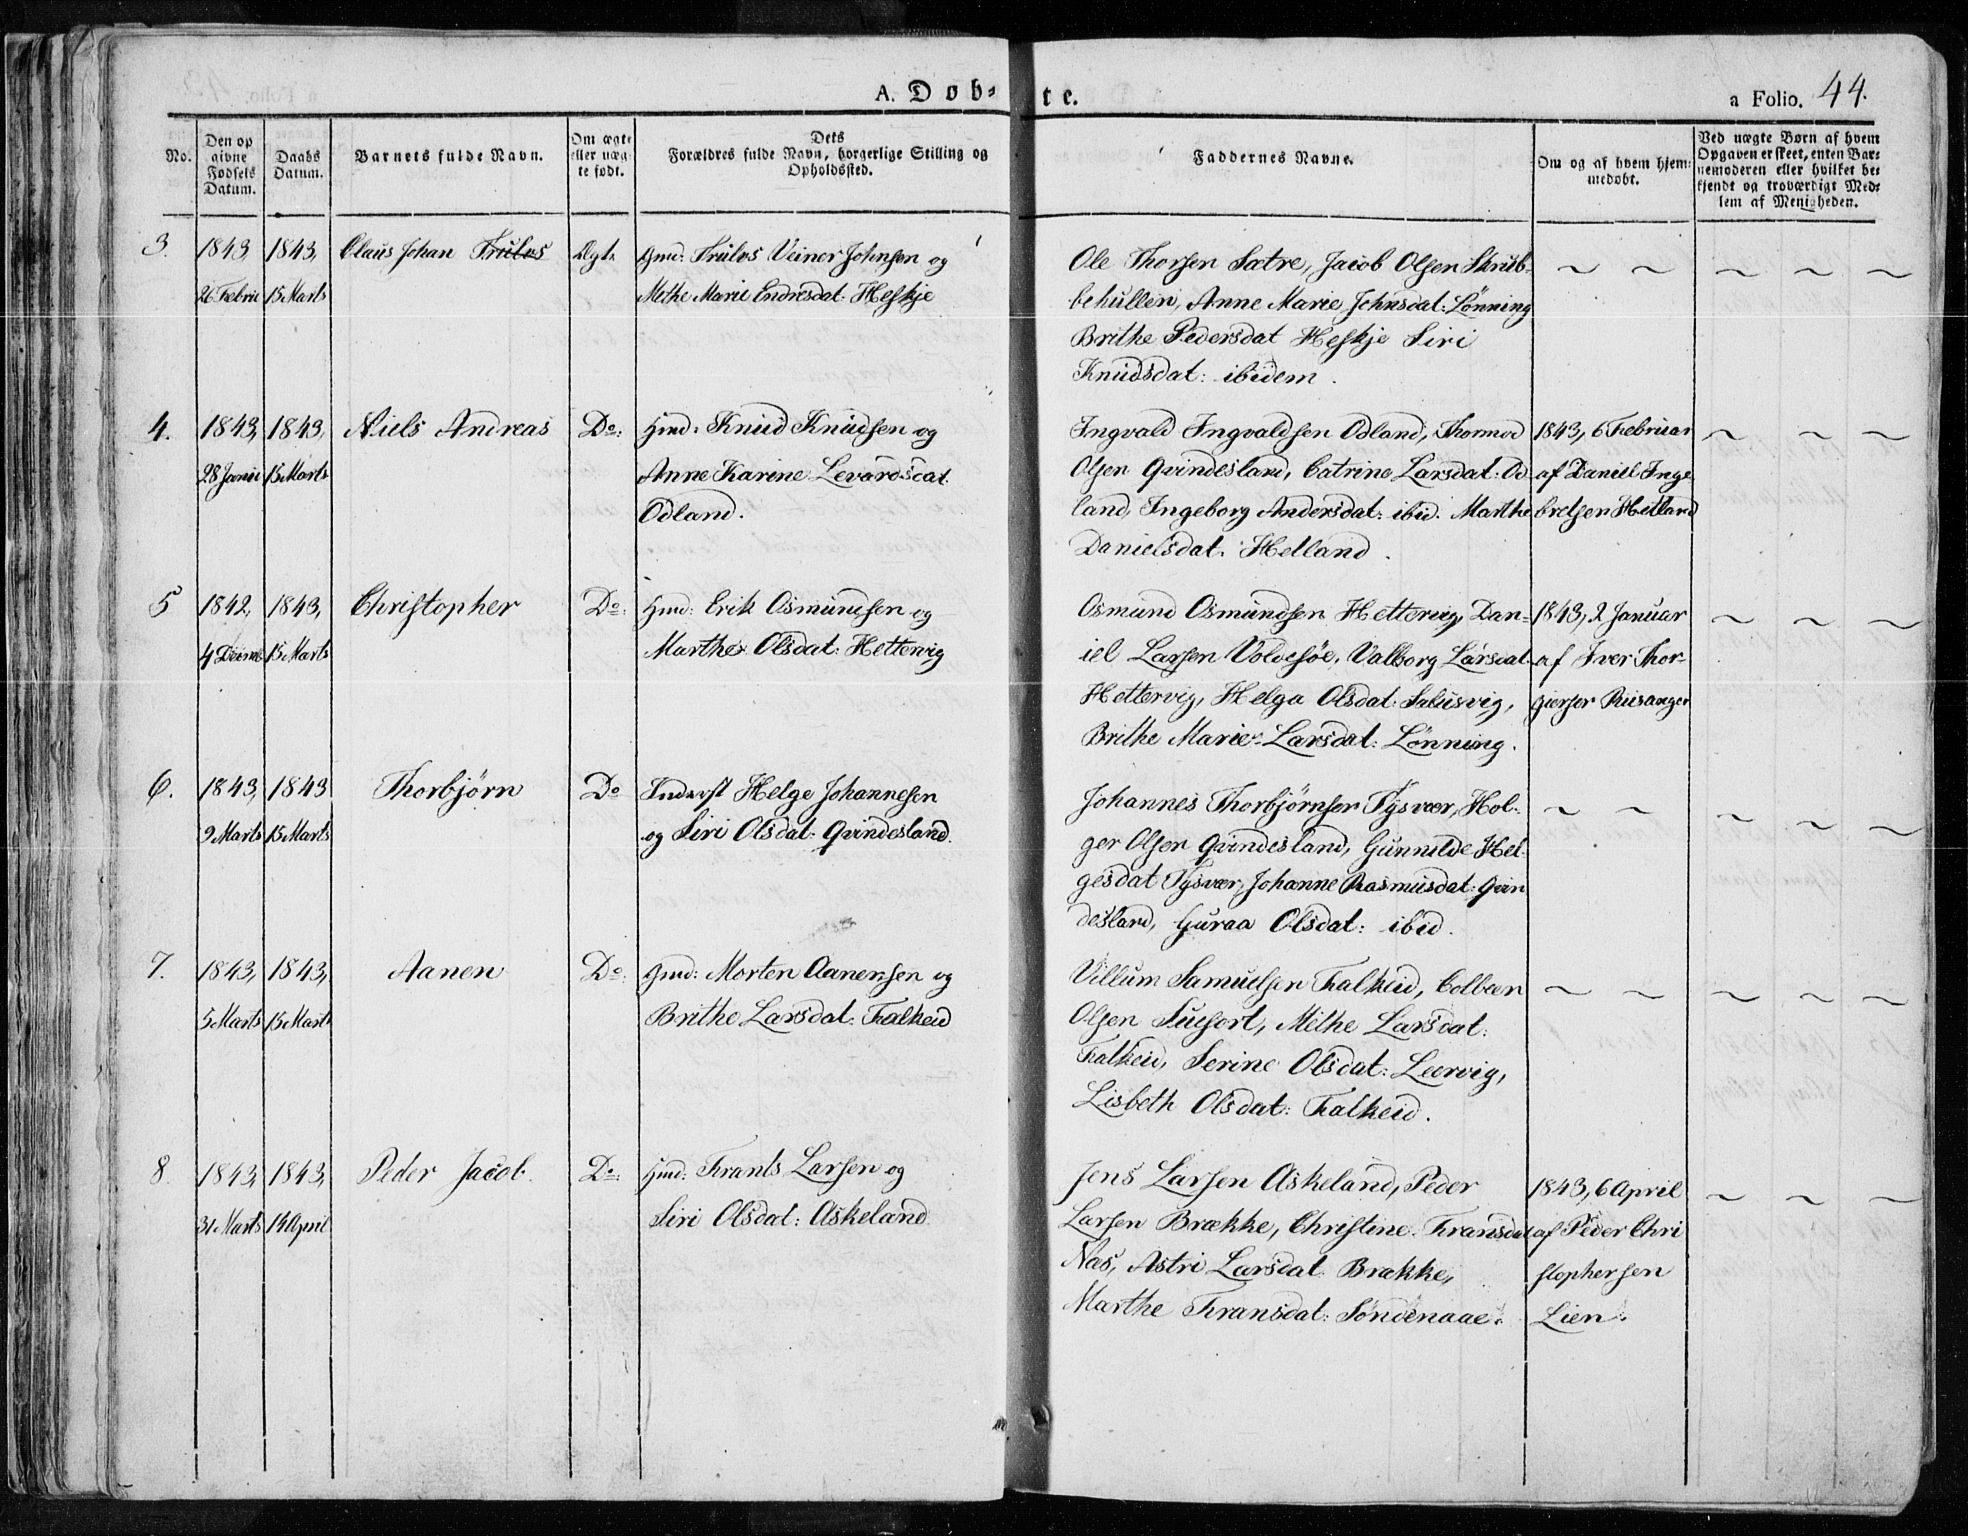 A. Døb- te.
a Folio. 44.
No.
Den op
givne
Fødsels
Datum.
Daabs
Datum.
Barnets fulde Navn.
Om ægte
eller uæg-
te født.
Dets
Forældres fulde Navn, borgerlige Stilling og
Opholdssted.
Faddernes Navne.
Om og af hvem hjem-
medøbt.
Ved uægte Børn af hvem
Opgaven er skeet, enten Bar-
nemoderen eller hvilket be-
kjendt og troværdigt Med-
lem af Menigheden.
3. 1843, 1843, Claus Johan Trulvs Ægt. Gmd: Trulvs Veiner Johnsen og
26 Febru 15 Marts Methe Marie Endresdat: Heskje
Ole Thorsen Sætre, Jacob Olsen Skrub-
behullen, Anne Marie Johnsdat: Lønning
Brithe Pedersdat Heskje Siri
Knudsdat: ibidem.
4. 1843, 1843, Niels Andreas Do: Hmd: Knud Knudsen og
28 Janu 15 Marts Anne Karine Levardsdat
Odland.
Ingvald Ingvaldsen Odland, Thormod
Olsen Qvindesland, Catrine Larsdat: Od-
land, Ingeborg Andersdat: ibid. Marthe
Danielsdat. Helland.
1843, 6 Februar
af Daniel Inge
bretsen Hetland
5 1842, 1843, Christopher Do: Hmd: Erik Osmundsen og
4 Decemb 15 Marts Marthe Olsdat: Hettervig
Osmund Osmundsen Hettervig, Dan-
iel Larsen Voldesøe, Valborg Larsdat
Hettervig, Helga Olsdat: Salusvig,
Brithe Marie Larsdat: Lønning.
1843, 2 Januar
af Iver Thor-
giersen Riisanger
6. 1843, 1843 Thorbjörn Do Inderst Helge Johannesen
9 Marts 15 Marts og Siri Olsdat: Qvindesland.
Johannes Thorbjørnsen Tysvær, Hol-
ger Olsen Qvindesland, Gunnilde Hel-
gesdat Tysvær, Johanne Rasmusdat: Qvin
desland, Guraa Olsdat: ibid.
7. 1843, 1843, Aanen Do: Gmd: Morten Aanensen og
5 Marts 15 Marts Brithe Larsdat: Falkeid
Villum Samuelsen Falkeid, Colbeen
Olsen Suesort, Methe Larsdat:
Falkeid, Serine Olsdat: Leervig,
Lisbeth Olsdat: Falkeid.
8. 1843, 1843, Peder Jacob. Do: Hmd: Frants Larsen og
31 Marts 14 April Siri Olsdat: Askeland.
Jens Larsen Askeland, Peder
Larsen Brække, Christine Fransdat
Nas, Astri Larsdat Brække,
Marthe Fransdat: Söndenaae.
1843, 6 April
af Peder Chri
stophersen
Lien.